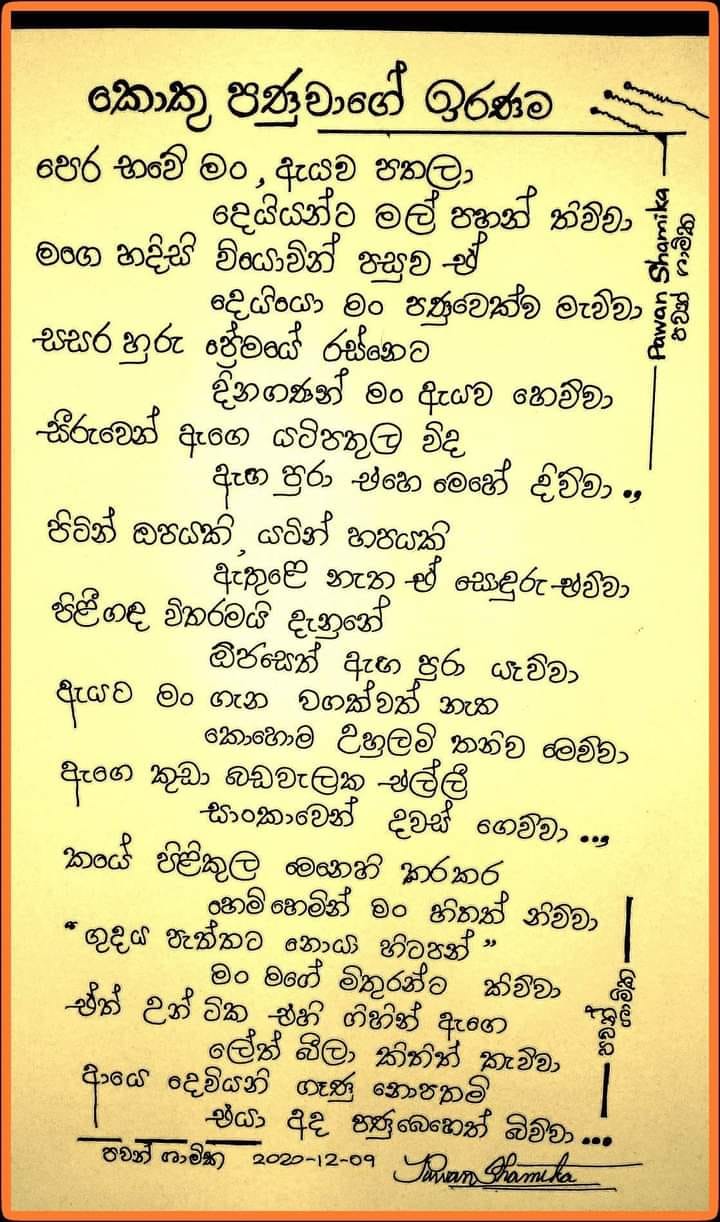 කොකු පණුවාගේ ඉරණම
පෙර භවේ මං, ඇයව පතලා
දෙයියන්ට මල් පහන් තිව්වා
මගෙ හදිසි වියොවින් පසුව ඒ
දෙයියො මං පණුවෙක්ව මැව්වා
සසර හුරු ප්‍රේමයේ රස්නෙට
දිනගණන් මං ඇයව හෙව්වා
සීරුවෙන් ඇගෙ යටිපතුල විද
ඇඟ පුරා එහෙ මෙහේ දිව්වා .,
පිටින් ඔපයකි, යටින් හපයකි
ඇතුළෙ නැත ඒ සොඳුරු එව්වා
පිළීගඳ විතරමයි දැනුනේ
ඕජසෙත් ඇඟ පුරා යැව්වා
ඇයට මං ගැන වගක්වත් නැත
කොහොම උහුලම් තනිව මෙව්වා
ඇගෙ කුඩා බඩවැලක එල්ලී
සාංකාවෙන් දවස් ගෙව්වා ...,
කයේ පිළිකුල මෙනෙහි කරකර
හෙමිහෙමින් මං හිතත් නිව්වා
"ගුදය පැත්තට නොයා හිටපන්"
මං මගේ මිතුරන්ට කිව්වා
ඒත් උන් ටික එහි ගිහින් ඇගෙ
ලේත් බීලා කිතිත් කැව්වා
ආයෙ දෙවියනි ගෑණු නොපතමි
එයා අද පණුබෙහෙත් බිව්වා...
පවන් ශාමික 2020-12-09 Pawan Shamika
Pawan Shamika
පවන් ශාමික
පවන්
ශාමික